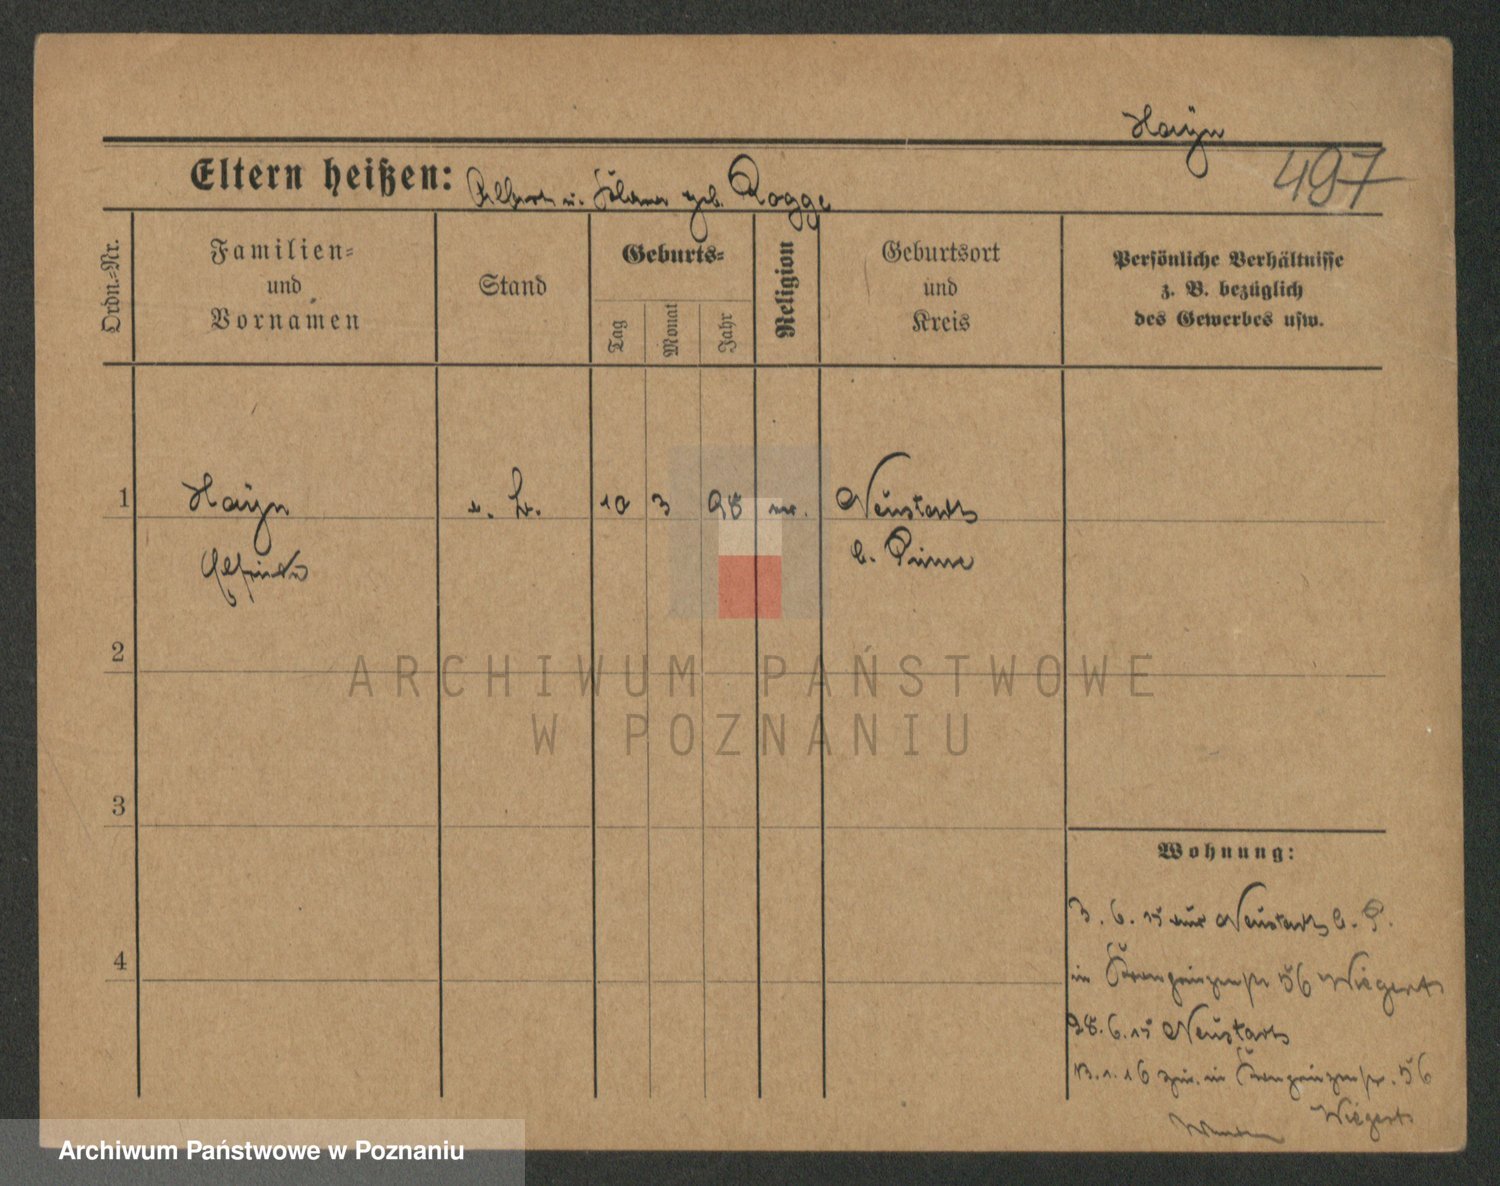 Haÿn
497
Eltern heißen: Albert u. geb. Rogge
Ordn.-Nr.
Familien-
und
Vornamen
Stand
Geburts-
Tag
Monat
Jahr
Religion
Geburtsort
und
Kreis
Persönliche Verhältnisse
z. B. bezüglich
des Gewerbes usw.
1
Haÿn
10 3 98
Neustadt
b. Pinne
2
3
4
ARCHIWUM PAŃSTWOWE
W POZNANIU
Wohnung:
3.6.15 aus Neustadt b. P.
in Kronprinzenstr 56 Wiegert
28.6.15 Neustadt
13.1.16 in Kronprinzenstr. 56
Wiegert
Archiwum Państwowe w Poznaniu